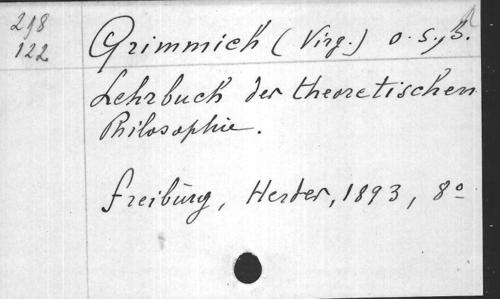 218
122
Grimmich (Virg.) O. S. B.
Lehrbuch der theoretischen
Philosophie.
Freiburg, Herder, 1893, 8º